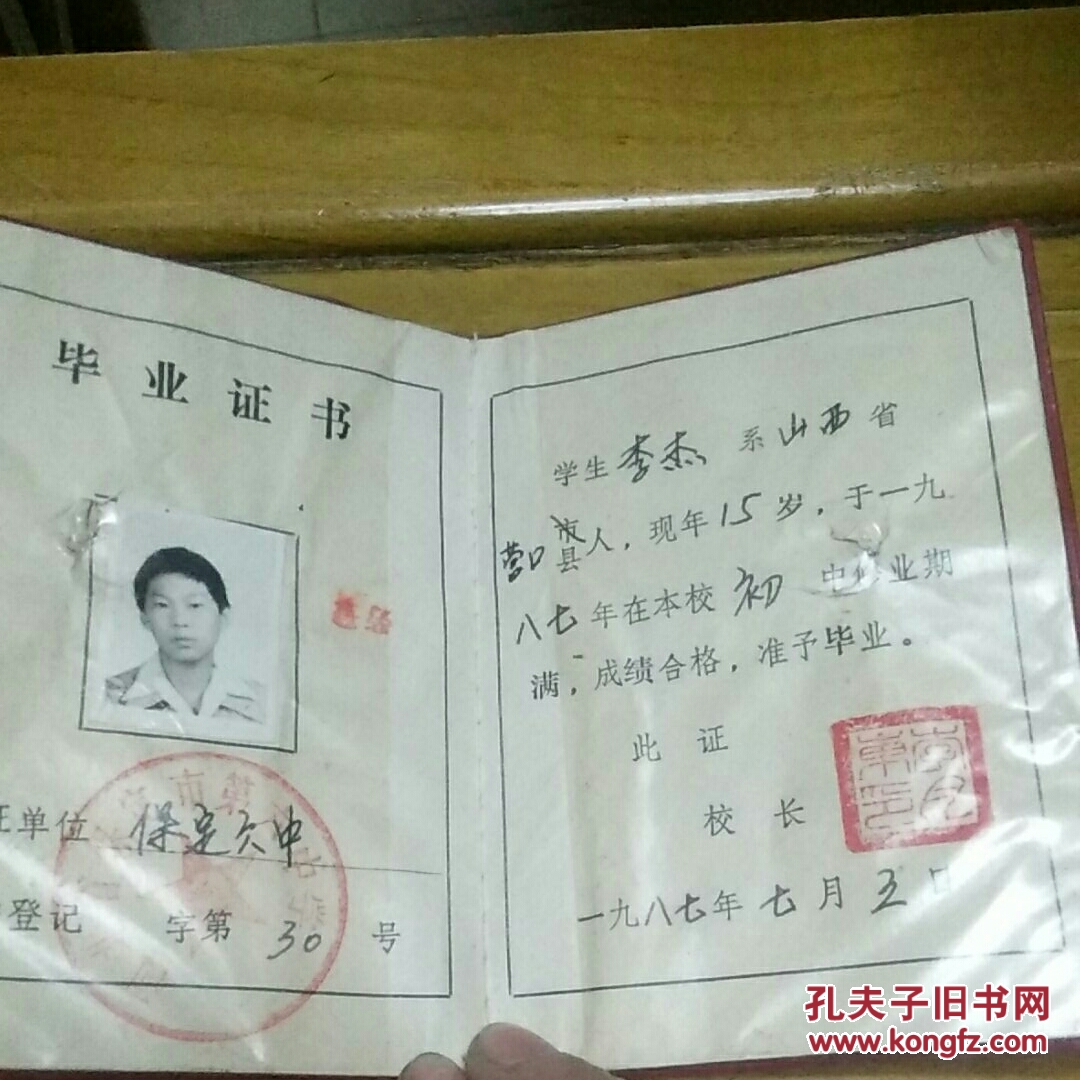 毕业证书
证单位 保定六中
登记 字第 30 号
学生 李杰 系 山西 省
营口 市县人，现年 15 岁，于一九
八七年在本校 初 中修业期
满，成绩合格，准予毕业。
此 证
校 长
一九八七年 七 月 五 日
孔夫子旧书网
www.kongfz.com